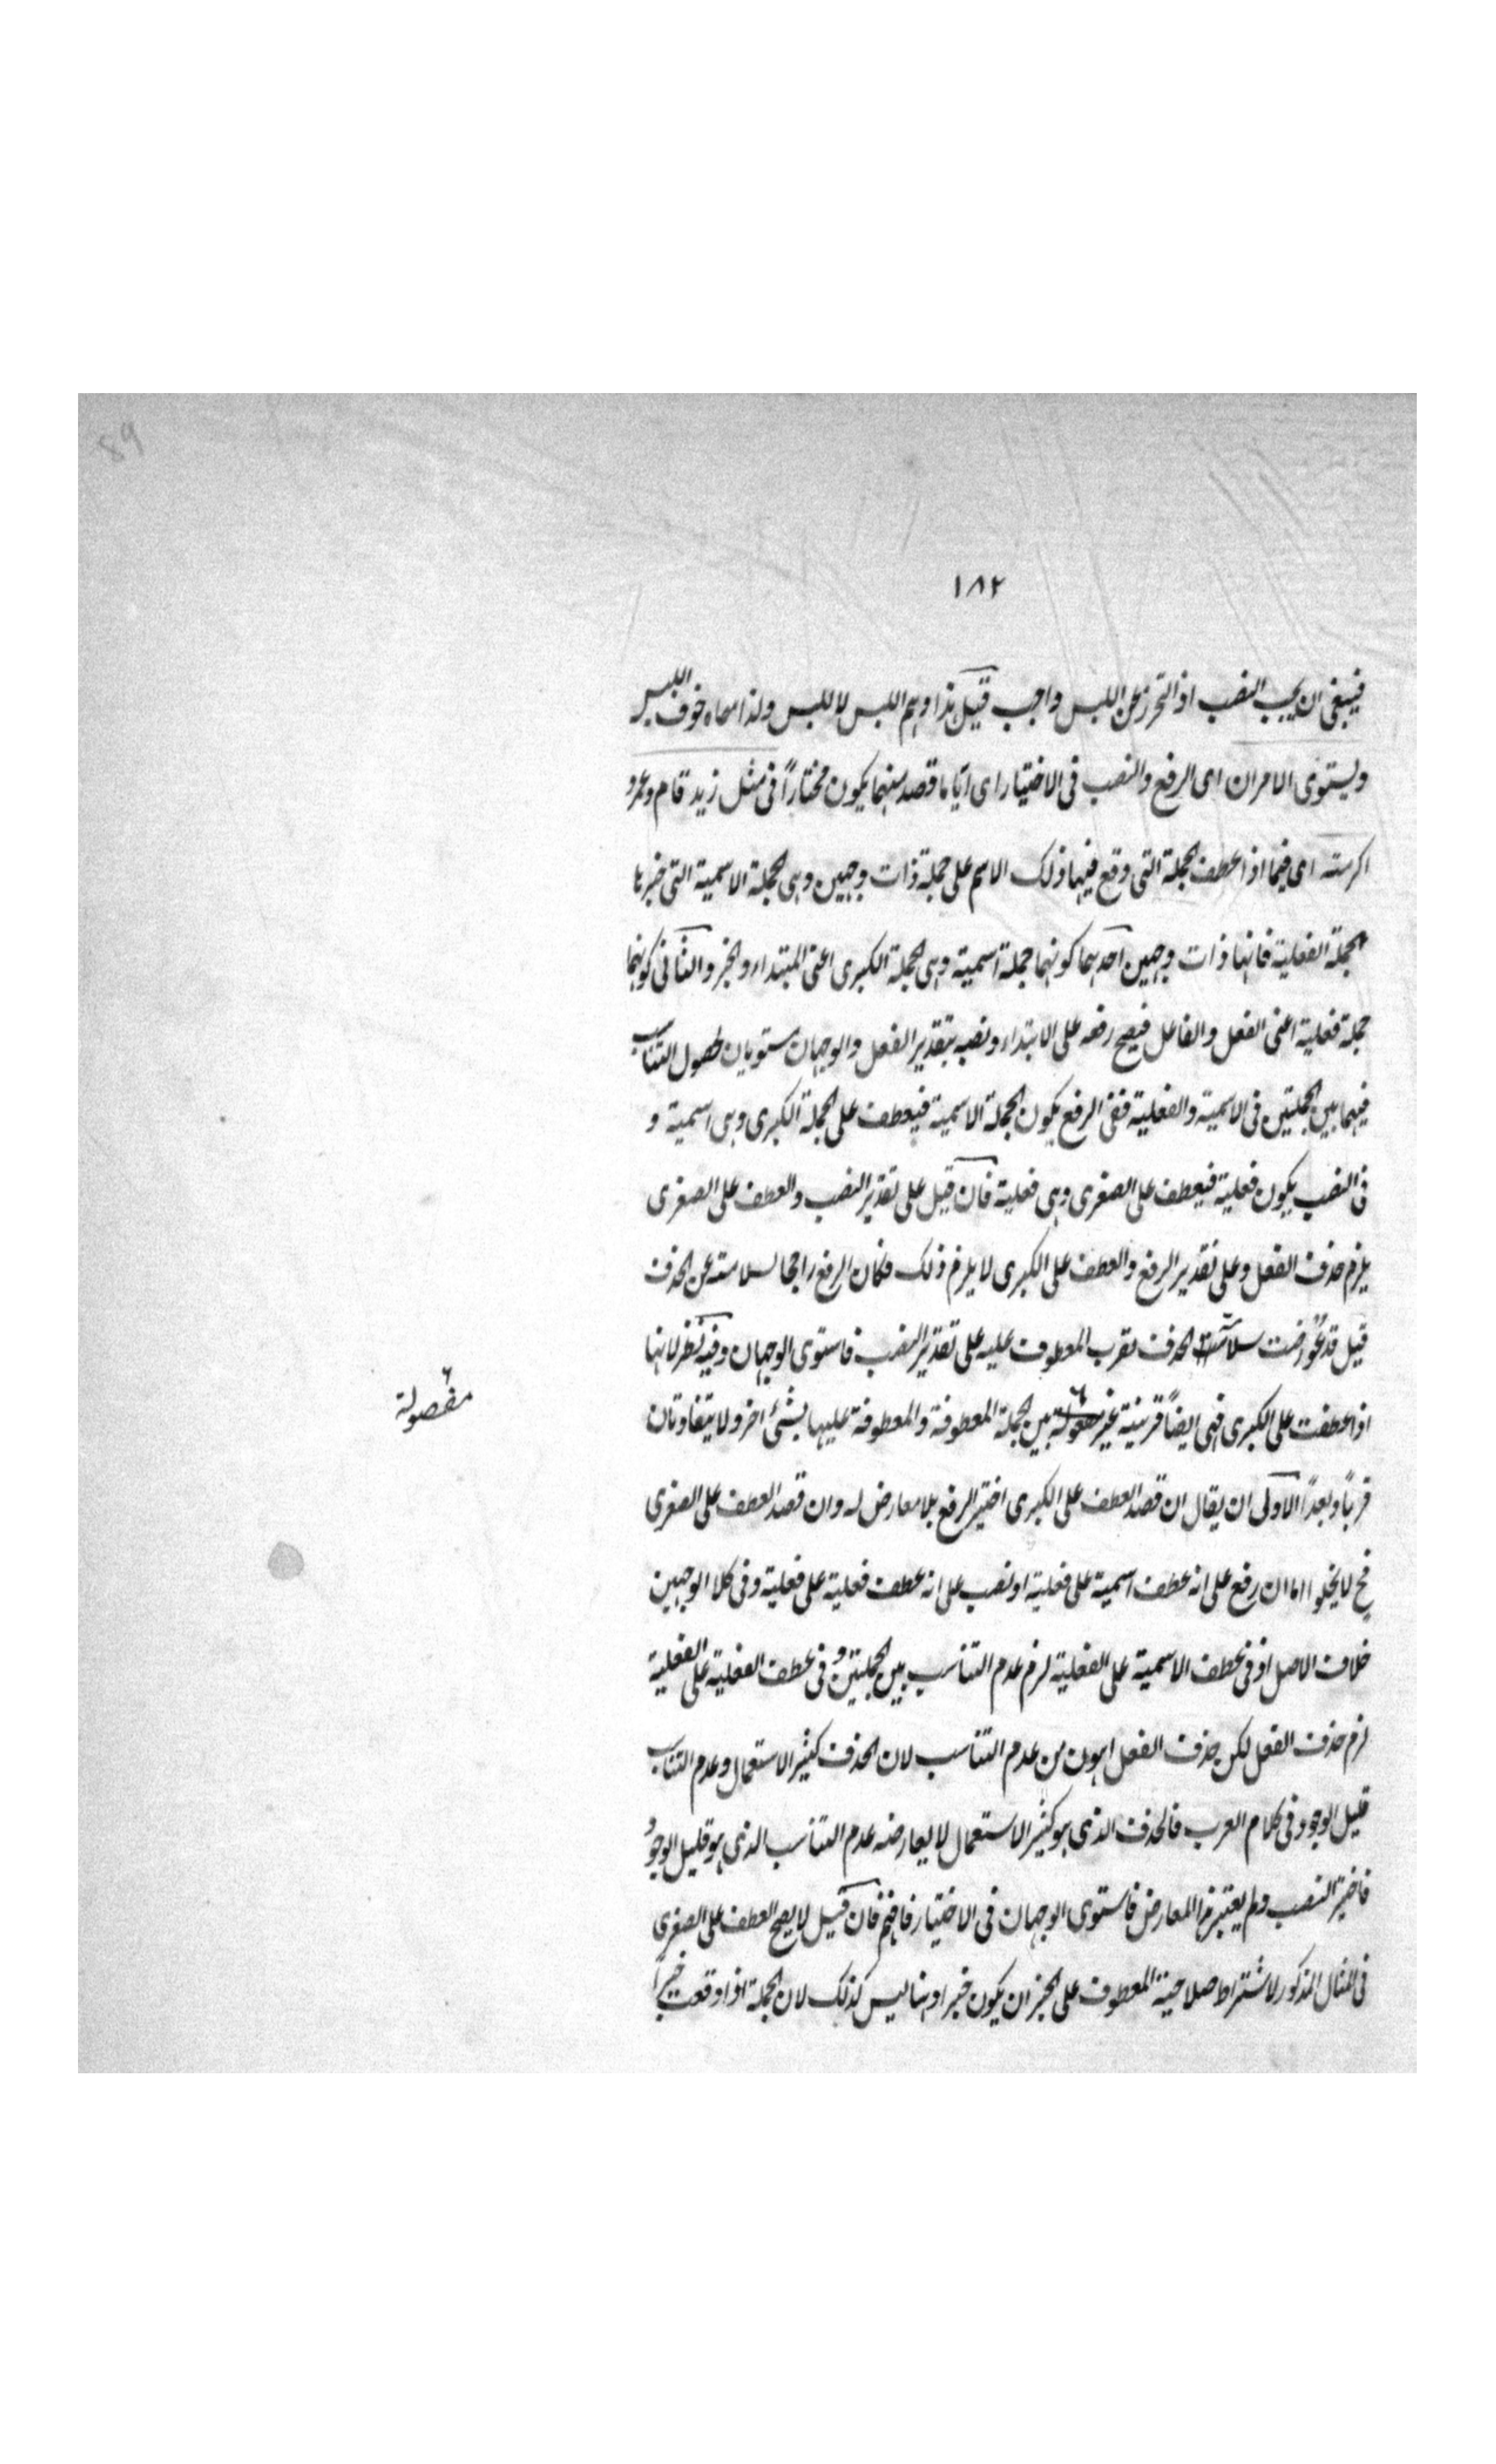 89
١٨٢
فينبغى ان يجب النصب اذ التحرز عن اللبس واجب قيل هذا وهم اللبس لا للبس ولذا سماه خوف اللبس
ويستوى الامران اى الرفع والنصب فى الاختيار اى ايّاً ما قصد منهما يكون مختاراً فى مثل زيد قام وعمرو
اكرمته اى فيما اذا عطف الجملة التى وقع فيها ذلك الاسم على جملة ذات وجهين وهى الجملة الاسمية التى خبرها
الجملة الفعلية فانها ذات وجهين احدهما كونهما جملة اسمية وهى الجملة الكبرى اعنى المبتداء والخبر والثانى كونهما
جملة فعلية اعنى الفعل والفاعل فيصح رفعه على الابتداء ونصبه بتقدير الفعل والوجهان مستويان لحصول التناسب
فيهما بين الجملتين فى الاسمية والفعلية ففى الرفع يكون الجملة الاسمية فيعطف على الجملة الكبرى وهى اسمية و
فى النصب يكون فعلية فيعطف على الصغرى وهى فعلية فان قيل على تقدير النصب والعطف على الصغرى
يلزم حذف الفعل وعلى تقدير الرفع والعطف على الكبرى لا يلزم ذلك فكان الرفع راجحا لسلامته عن الحذف
قيل قد عُورضت سلامة الحذف بقرب المعطوف عليه على تقدير النصب فاستوى الوجهان وفيه نظر لانها
اذا عطفت على الكبرى فهى ايضاً قريبة غير ٦ بين الجملة المعطوفة والمعطوفة عليها بشئ اخر ولا يتفاوتان
٦
مفصولة
قرباً وبعداً الاولى ان يقال ان قصد العطف على الكبرى اختير الرفع بلا معارض له وان قصد العطف على الصغرى
فح لا يخلو اما ان رفع على انه عطف اسمية على فعلية او نصب على انه عطف فعلية على فعلية وفى كلا الوجهين
خلاف الاصل اذ فى عطف الاسمية على الفعلية لزم عدم التناسب بين الجملتين و فى عطف الفعلية على الفعلية
لزم حذف الفعل لكن حذف الفعل اهون من عدم التناسب لان الحذف كثير الاستعمال وعدم التناسب
قليل الوجود فى كلام العرب فالحذف الذى هو كثير الاستعمال لا يعارضه عدم التناسب الذى هو قليل الوجود
فاختير النصب ولم يعتبر هذا المعارض فاستوى الوجهان فى الاختيار فافهم فان قيل لا يصح العطف على الصغرى
فى المثال المذكور لاشتراط صلاحية المعطوف على الخبر ان يكون خبرا وهنا ليس كذلك لان الجملة اذا وقعت خبراً